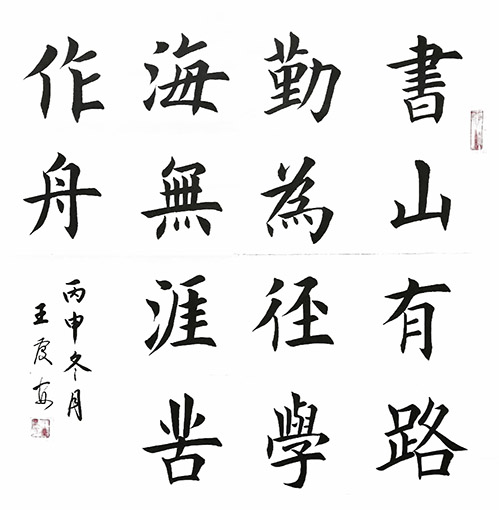 書山有路
勤為径學
海無涯苦
作舟
丙申冬月
王